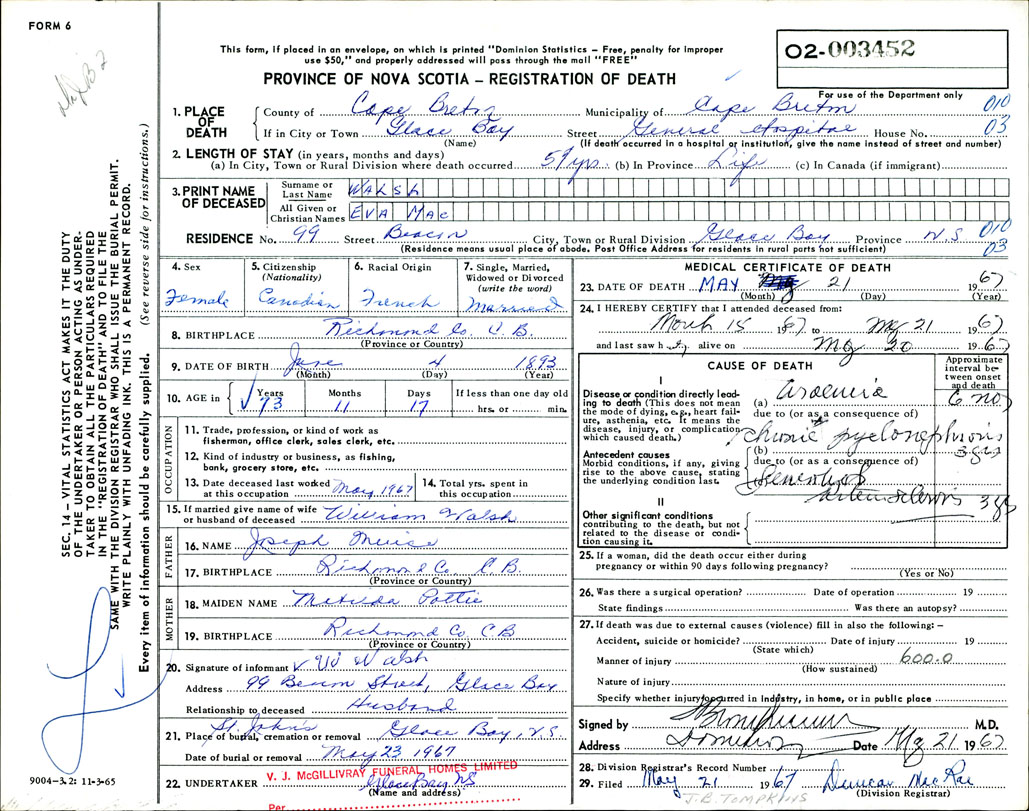 FORM 6
02-003452
This form, if placed in an envelope, on which is printed "Dominion Statistics – Free, penalty for improper
use $50," and properly addressed will pass through the mail "FREE"
PROVINCE OF NOVA SCOTIA – REGISTRATION OF DEATH
For use of the Department only
1. PLACE OF DEATH County of Cape Breton Municipality of Cape Breton 010
If in City or Town Glace Bay Street General Hospital House No. 03
(Name) (If death occurred in a hospital or institution, give the name instead of street and number)
2. LENGTH OF STAY (in years, months and days)
(a) In City, Town or Rural Division where death occurred 59 yrs. (b) In Province Life (c) In Canada (if immigrant)
3. PRINT NAME OF DECEASED Surname or Last Name WALSH
All Given or Christian Names EVA MAC
RESIDENCE No. 99 Street Beacon City, Town or Rural Division Glace Bay Province N.S 010 03
(Residence means usual place of abode. Post Office Address for residents in rural parts not sufficient)
4. Sex Female
5. Citizenship (Nationality) Canadian
6. Racial Origin French
7. Single, Married, Widowed or Divorced (write the word) Married
8. BIRTHPLACE Richmond Co. C.B.
(Province or Country)
9. DATE OF BIRTH June 4 1893
(Month) (Day) (Year)
10. AGE in Years 73 Months 11 Days 17 If less than one day old hrs. or min.
OCCUPATION
11. Trade, profession, or kind of work as
fisherman, office clerk, sales clerk, etc.
12. Kind of industry or business, as fishing,
bank, grocery store, etc.
13. Date deceased last worked at this occupation May, 1967 14. Total yrs. spent in this occupation
15. If married give name of wife or husband of deceased William Walsh
FATHER
16. NAME Joseph
17. BIRTHPLACE Richmond Co. C.B.
(Province or Country)
MOTHER
18. MAIDEN NAME Matilda Pottie
19. BIRTHPLACE Richmond Co C B
(Province or Country)
20. Signature of informant Walsh
Address 99 Beacon Street, Glace Bay
Relationship to deceased Husband
21. Place of burial, cremation or removal St. John's Glace Bay, N.S.
Date of burial or removal May 23 1967
22. UNDERTAKER V. J. McGILLIVRAY FUNERAL HOMES LIMITED
Glace Bay NS
(Name and address)
Per
MEDICAL CERTIFICATE OF DEATH
23. DATE OF DEATH MAY 21 1967
(Month) (Day) (Year)
24. I HEREBY CERTIFY that I attended deceased from:
March 15 1967 to May 21 1967
and last saw h alive on May 20 1967
CAUSE OF DEATH
Approximate interval between onset and death
I
Disease or condition directly leading to death (This does not mean the mode of dying, e.g., heart failure, asthenia, etc. It means the disease, injury, or complication which caused death.)
(a) uraemia 6 mo
due to (or as a consequence of)
chronic pyelonephrosis
(b) 3 yrs
Antecedent causes
Morbid conditions, if any, giving rise to the above cause, stating the underlying condition last.
due to (or as a consequence of)
arteriosclerosis 3 yrs
II
Other significant conditions
contributing to the death, but not related to the disease or condition causing it.
25. If a woman, did the death occur either during
pregnancy or within 90 days following pregnancy?
(Yes or No)
26. Was there a surgical operation? Date of operation 19
State findings Was there an autopsy?
27. If death was due to external causes (violence) fill in also the following: –
Accident, suicide or homicide? Date of injury 19
(State which)
Manner of injury 600.0
(How sustained)
Nature of injury
Specify whether injury occurred in industry, in home, or in public place
Signed by M.D.
Address Dominion Date May 21 1967
28. Division Registrar's Record Number
29. Filed May 21 1967 Duncan MacRae
(Division Registrar)
J.B. TOMPKINS
SEC. 14 – VITAL STATISTICS ACT MAKES IT THE DUTY
OF THE UNDERTAKER OR PERSON ACTING AS UNDER-
TAKER TO OBTAIN ALL THE PARTICULARS REQUIRED
IN THE "REGISTRATION OF DEATH" AND TO FILE THE
SAME WITH THE DIVISION REGISTRAR WHO SHALL ISSUE THE BURIAL PERMIT.
WRITE PLAINLY WITH UNFADING INK. THIS IS A PERMANENT RECORD.
Every item of information should be carefully supplied. (See reverse side for instructions.)
9004–3.2: 11-3-65